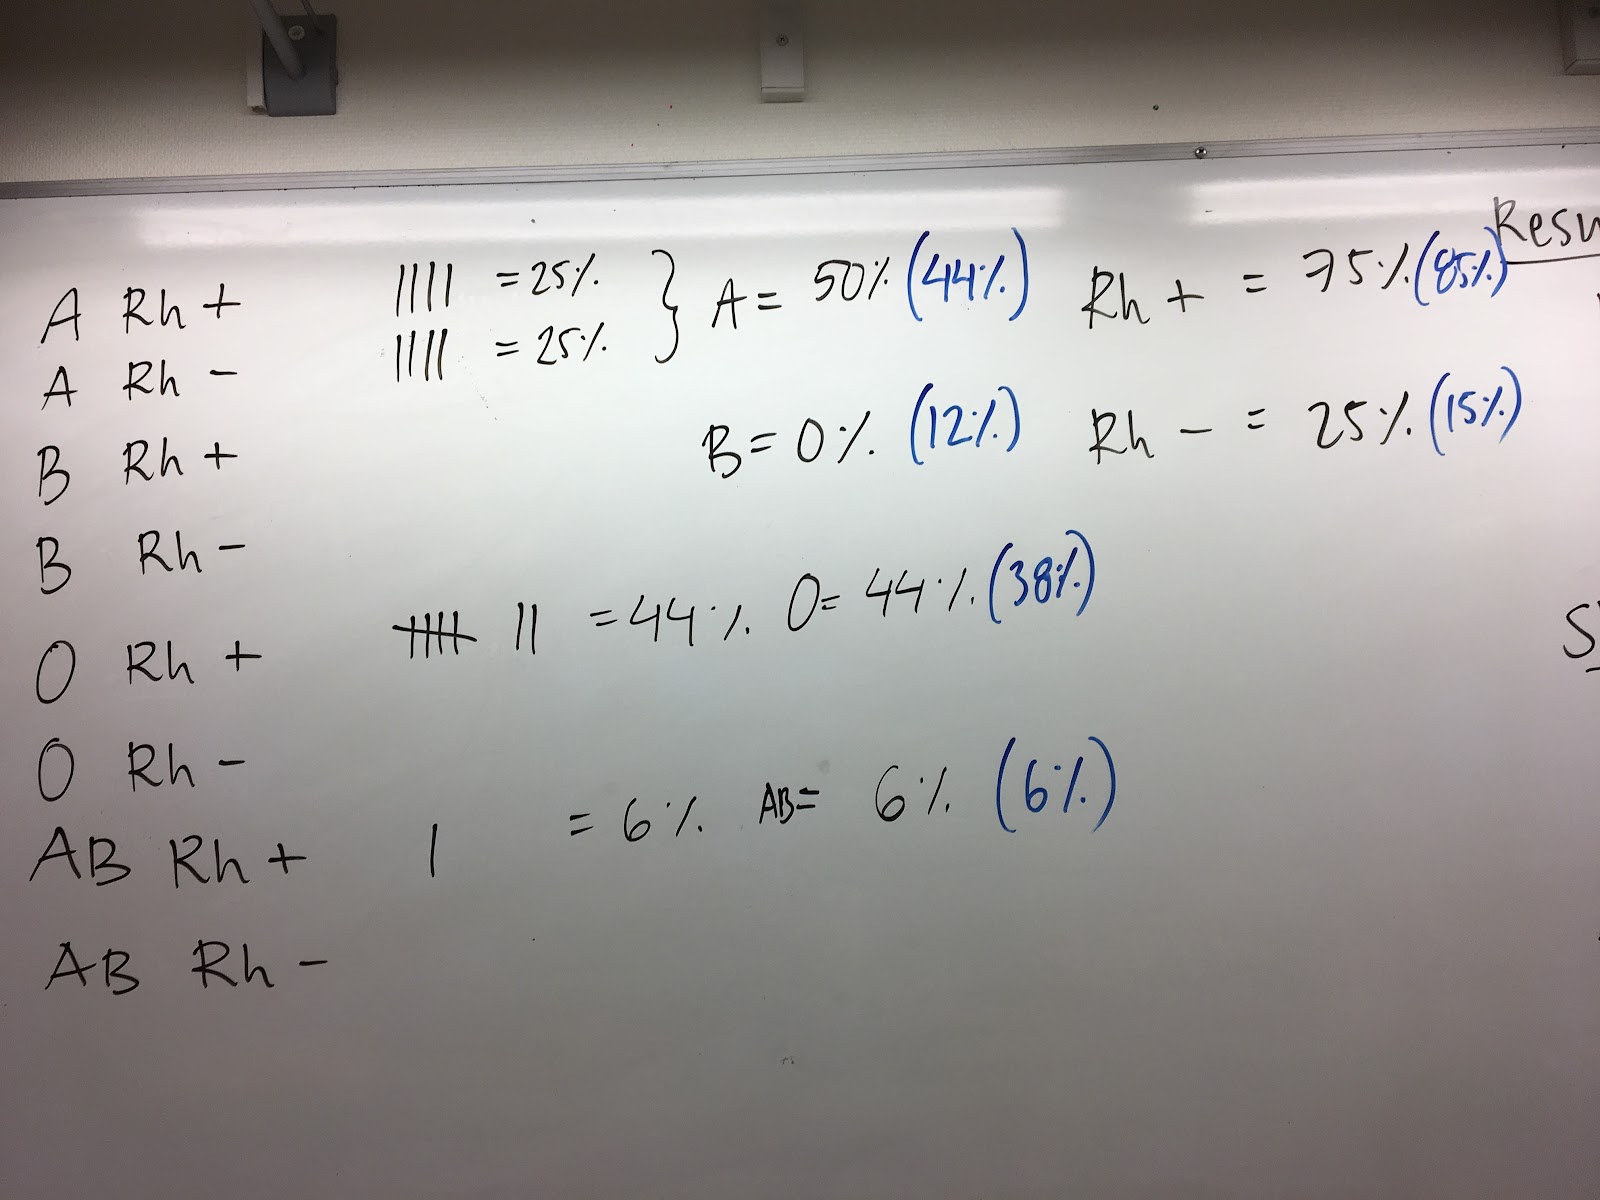 A Rh + |||| = 25% } A = 50% (44%) Rh + = 75% (85%)
A Rh - |||| = 25%
B Rh + B = 0% (12%) Rh - = 25% (15%)
B Rh -
O Rh + |||| || = 44% O = 44% (38%)
O Rh -
AB Rh + | = 6% AB = 6% (6%)
AB Rh -
Resu
S